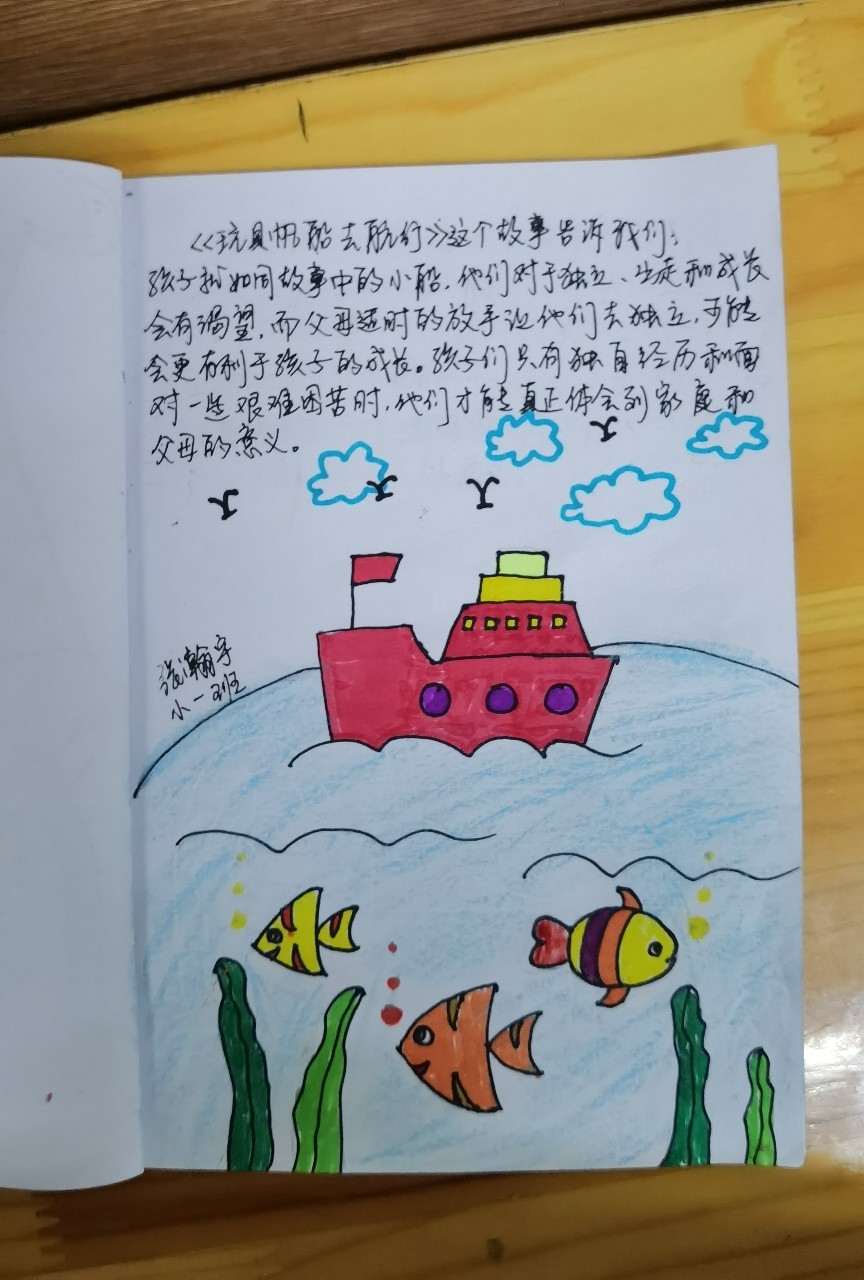 《玩具帆船去航行》这个故事告诉我们：
孩子就如同故事中的小船，他们对于独立、生走和成长
会有渴望，而父母适时的放手让他们去独立，可能
会更有利于孩子的成长。孩子们只有独自经历和面
对一些艰难困苦时，他们才能真正体会到家庭和
父母的意义。
张瀚宇
小一班